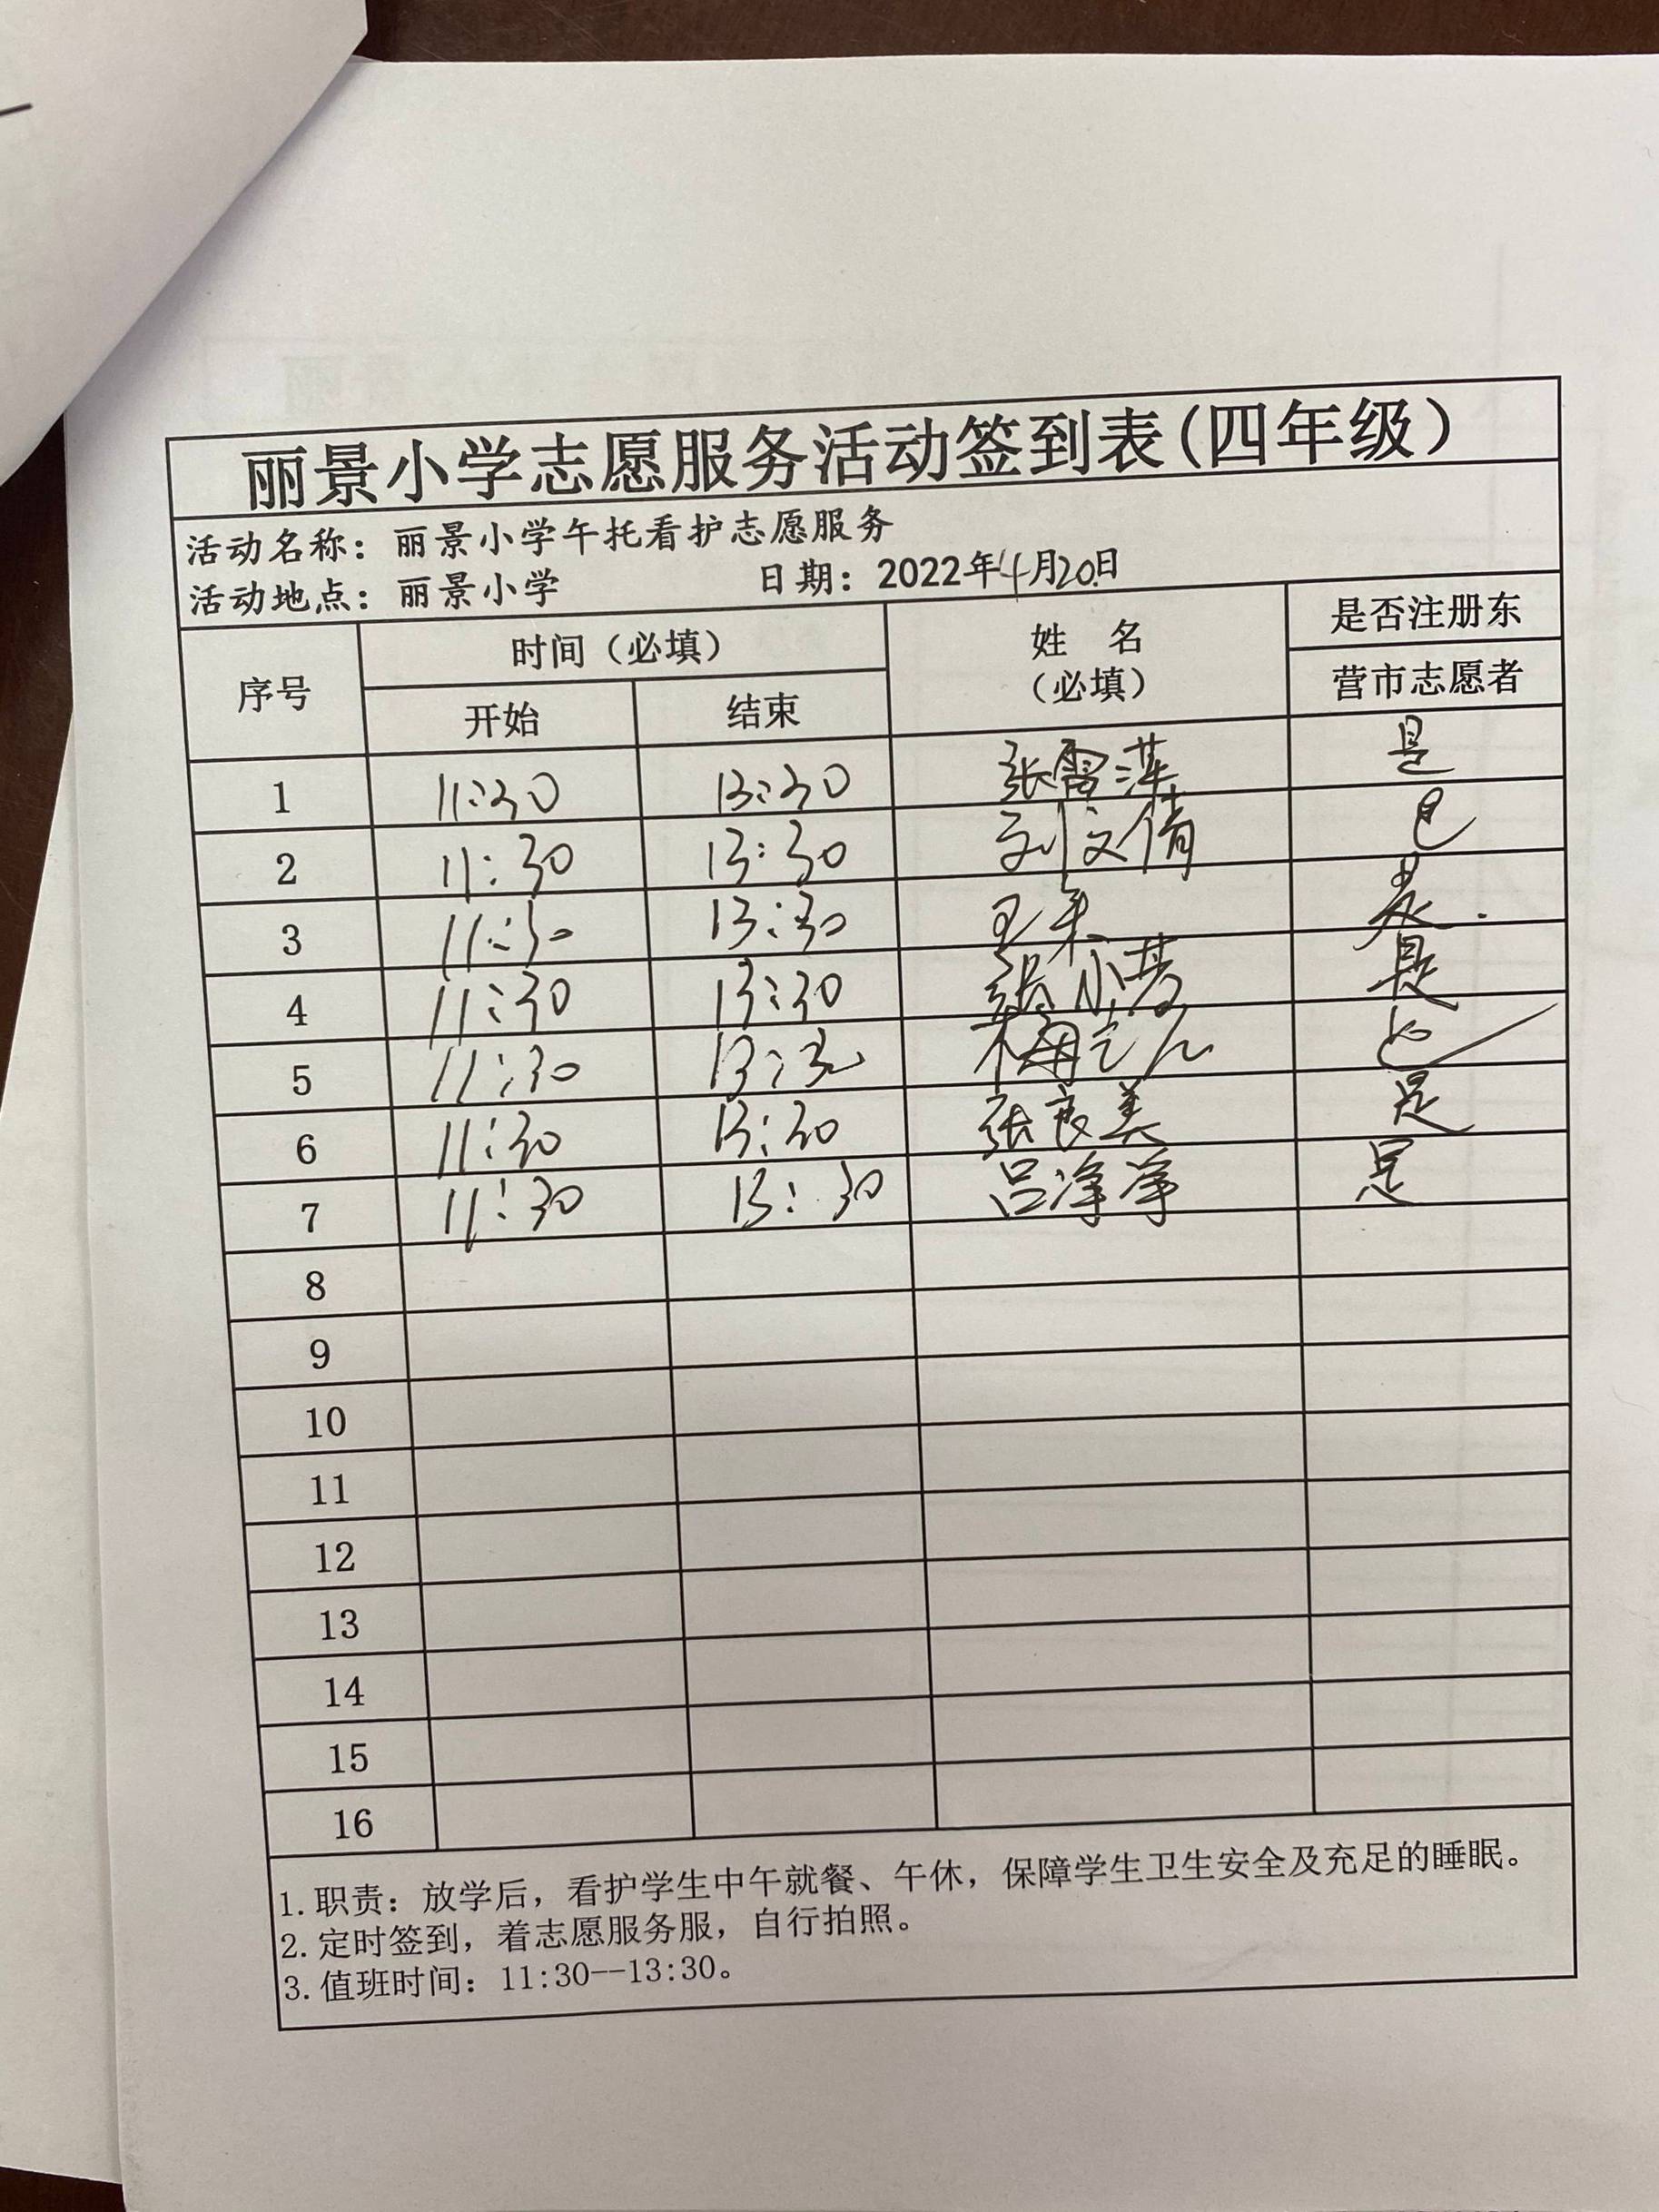 丽景小学志愿服务活动签到表(四年级)
活动名称：丽景小学午托看护志愿服务
活动地点：丽景小学 日期：2022年4月20日
序号 时间（必填） 姓 名（必填） 是否注册东营市志愿者
开始 结束
1 11:30 13:30 张雷萍 是
2 11:30 13:30 刘文倩 是
3 11:30 13:30 是
4 11:30 13:30 是
5 11:30 13:30 是
6 11:30 13:30 张良美 是
7 11:30 13:30 吕净净 是
8
9
10
11
12
13
14
15
16
1.职责：放学后，看护学生中午就餐、午休，保障学生卫生安全及充足的睡眠。
2.定时签到，着志愿服务服，自行拍照。
3.值班时间：11:30--13:30。